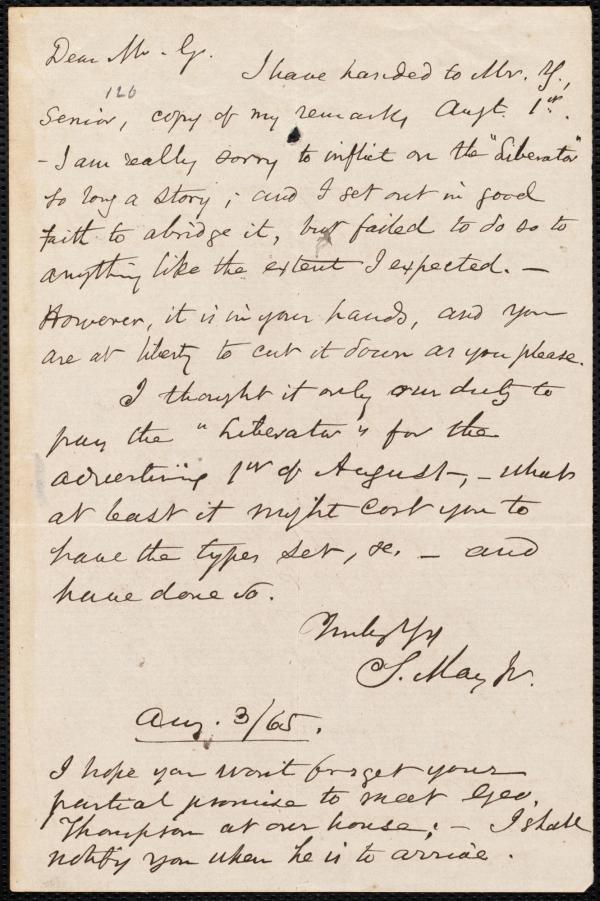 Dear Mr. G.
I have handed to Mr. Y.,
126
Senior, copy of my remarks Augt. 1st.
- I am really sorry to inflict on the "Liberator"
so long a story; and I set out in good
faith to abridge it, but failed to do so to
anything like the extent I expected. -
However, it is in your hands, and you
are at liberty to cut it down as you please.
I thought it only our duty to
pay the "Liberator" for the
advertising 1st of August, - what
at least it might cost you to
have the types set, &c. - and
have done so.
Truly Yrs
S. May Jr.
Aug. 3/65.
I hope you won't forget your
partial promise to meet Geo.
Thompson at our house; - I shall
notify you when he is to arrive.